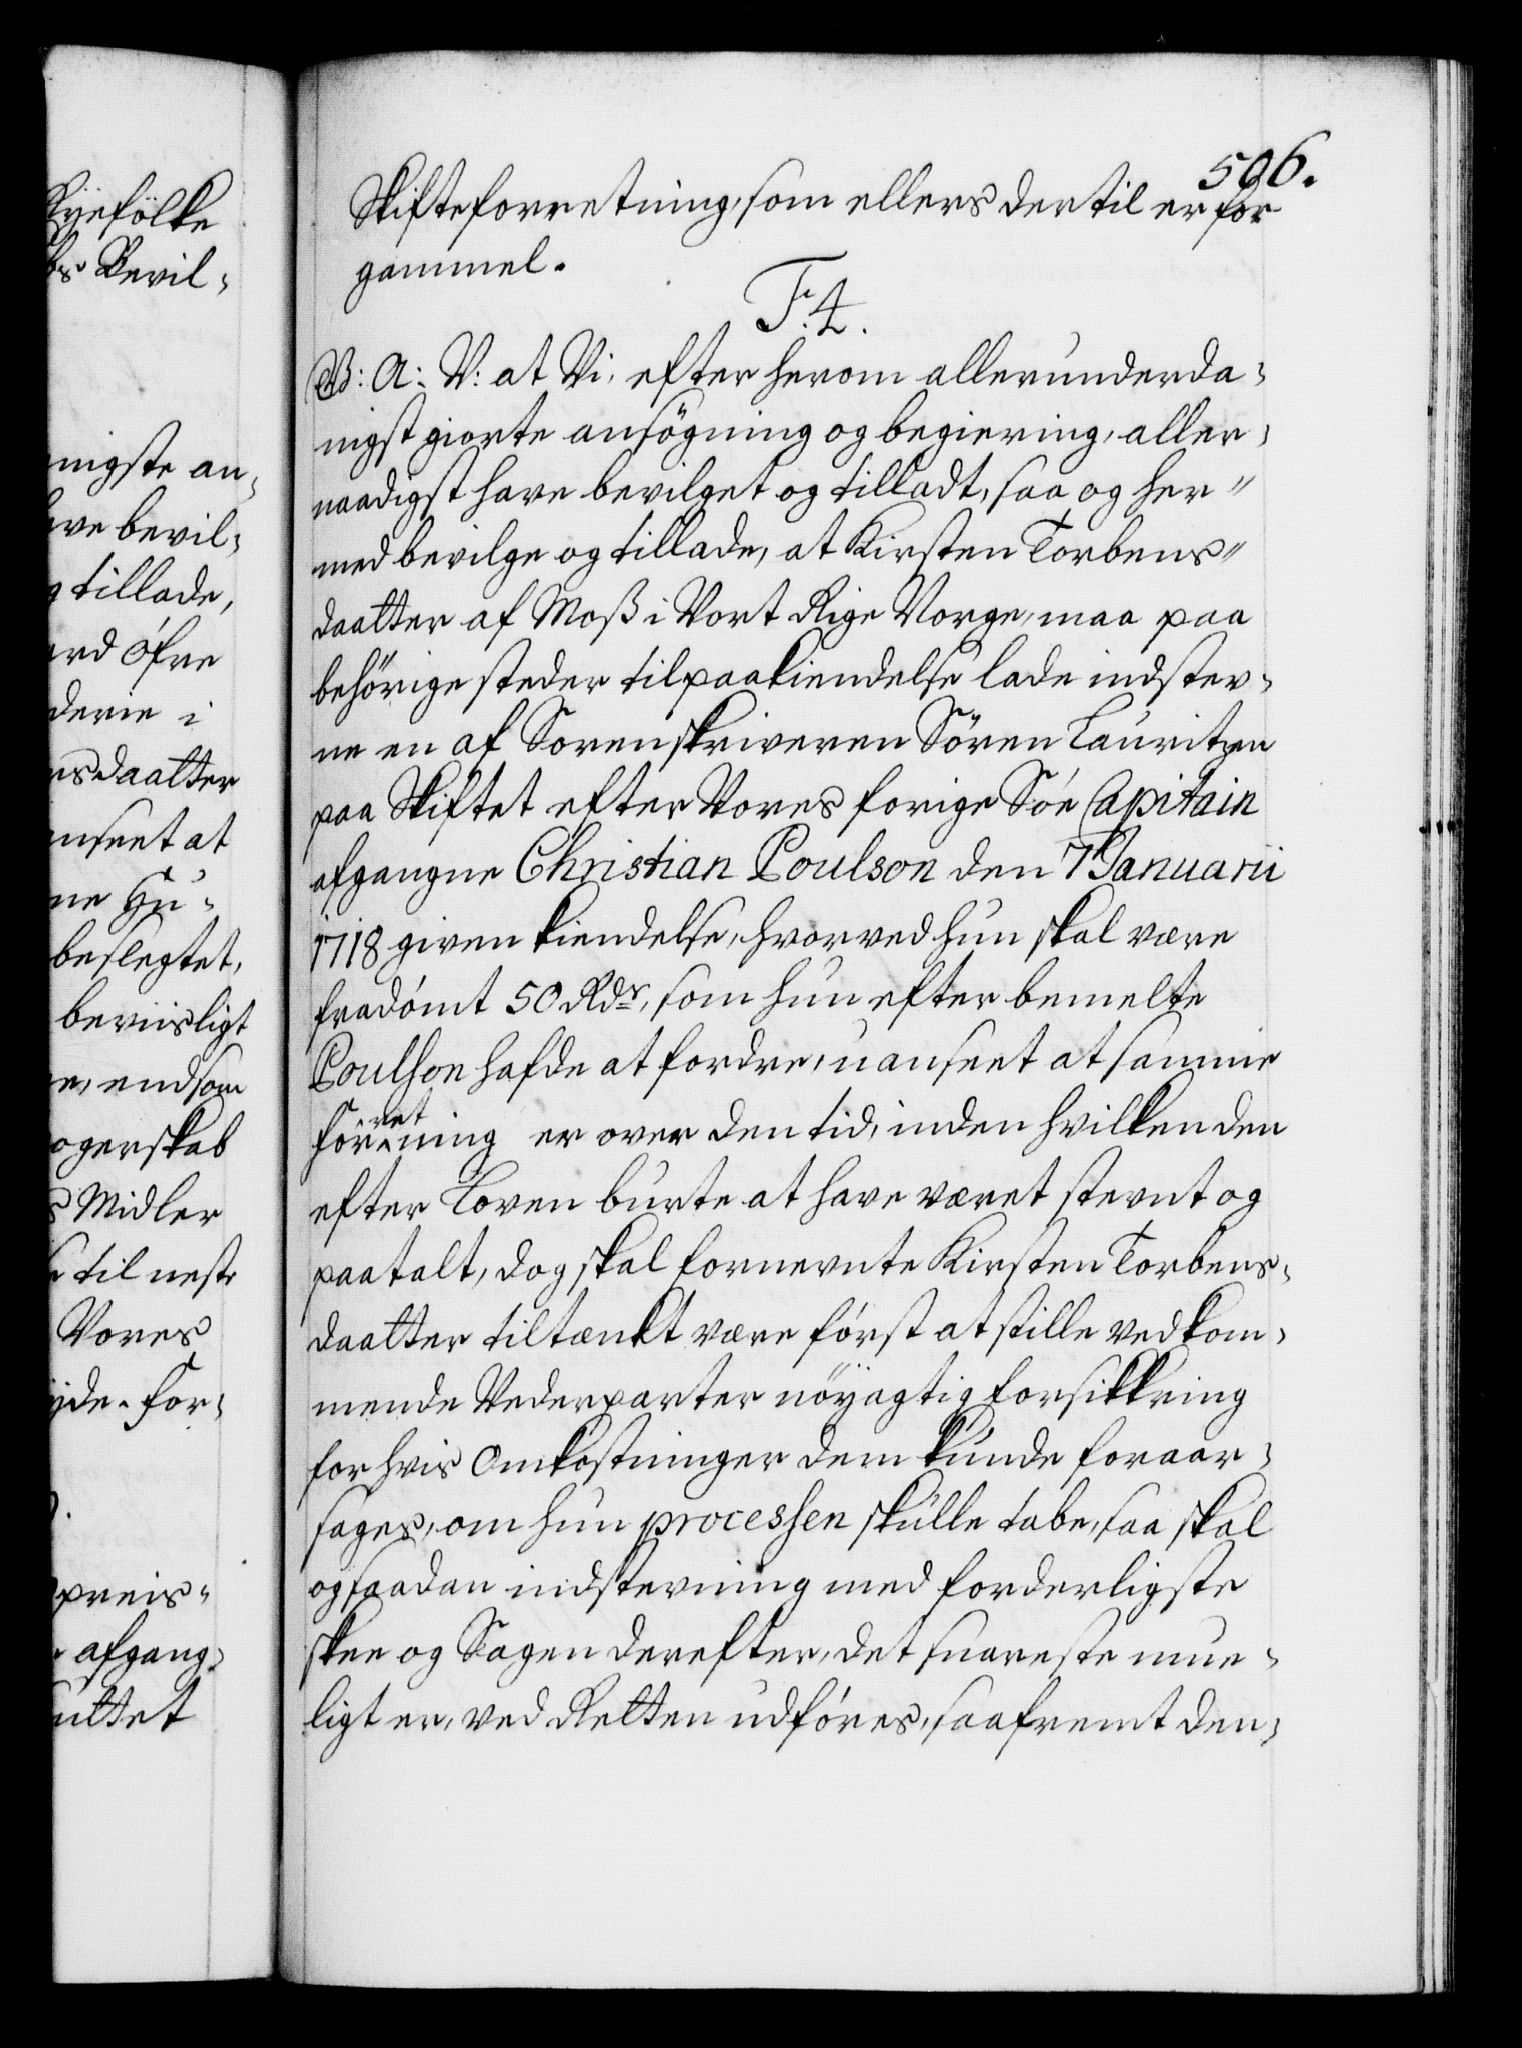 Ryefölke
bs Bevil-
nigste an-
ave bevil-
g tillade,
ard Ofve
derie i
rsdaatter
anseet at
ne Hu-
beslegtet,
beviisligt
re, endsom
ogerskab
s Midler
til nest
Vores
yde. for-
preis-
afgang-
uttet
506.
Skifteforretning, som ellers dertil er for
gammel.
F. 4.
V: A: V: at Vi, efter herom allerunderda-
nigst giorte ansögning og begiering, aller-
naadigst have bevilget og tilladt, saa og her-
med bevilge og tillade, at Kirsten Torbens-
daatter af Moss i Vort Rige Norge, maa paa
behörige steder til paakiendelse lade indstev-
ne en af Sorenskriveren Sören Lauritzen
paa Skiftet efter Vores forige Söe Capitain
afgangne Christian Poulson den 7 Januarii
1718 given kiendelse, hvorved hun skal være
fradömt 50 Rdr, som hun efter bemelte
Poulson hafde at fordre, uanseet at samme
forretning er over den tid, inden hvilken den
efter Loven burte at have været stevnt og
paatalt, dog skal fornevnte Kirsten Torbens-
daatter tiltænkt være först at stille vedkom-
mende Vederparter nöyagtig forsikkring
for hvis Omkostninger dem kunde foraar-
sages, om hun processen skulle tabe, saa skal
og saadan indstevning med forderligste
skee og Sagen derefter, det snareste mue-
ligt er, ved Retten udföres, saafremt den-